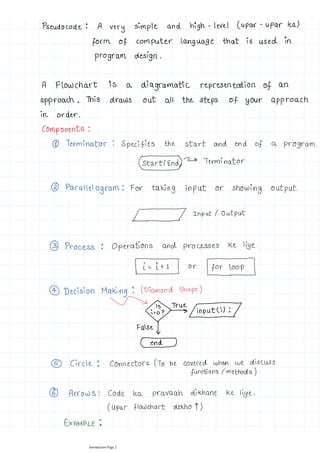 Pseudocode : A very simple and high-level (upar-upar ka)
form of computer language that is used in
program design.
A Flowchart is a diagramatic representation of an
approach. This draws out all the steps of your approach
in order.
Components :
① Terminator : Specifies the start and end of a program.
Start/End Terminator
② Parallelogram : For taking input or showing output.
Input / Output
③ Process : Operations and processes ke liye.
i = i+1 or for loop
④ Decision Making : (Diamond Shape)
is i=0? True input(i);
False
end
⑤ Circle : Connectors (To be covered when we discuss
functions / methods)
⑥ Arrows : Code ka pravaah dikhane ke liye.
(Upar flowchart dekho ↑)
EXAMPLE :
Introduction Page 2